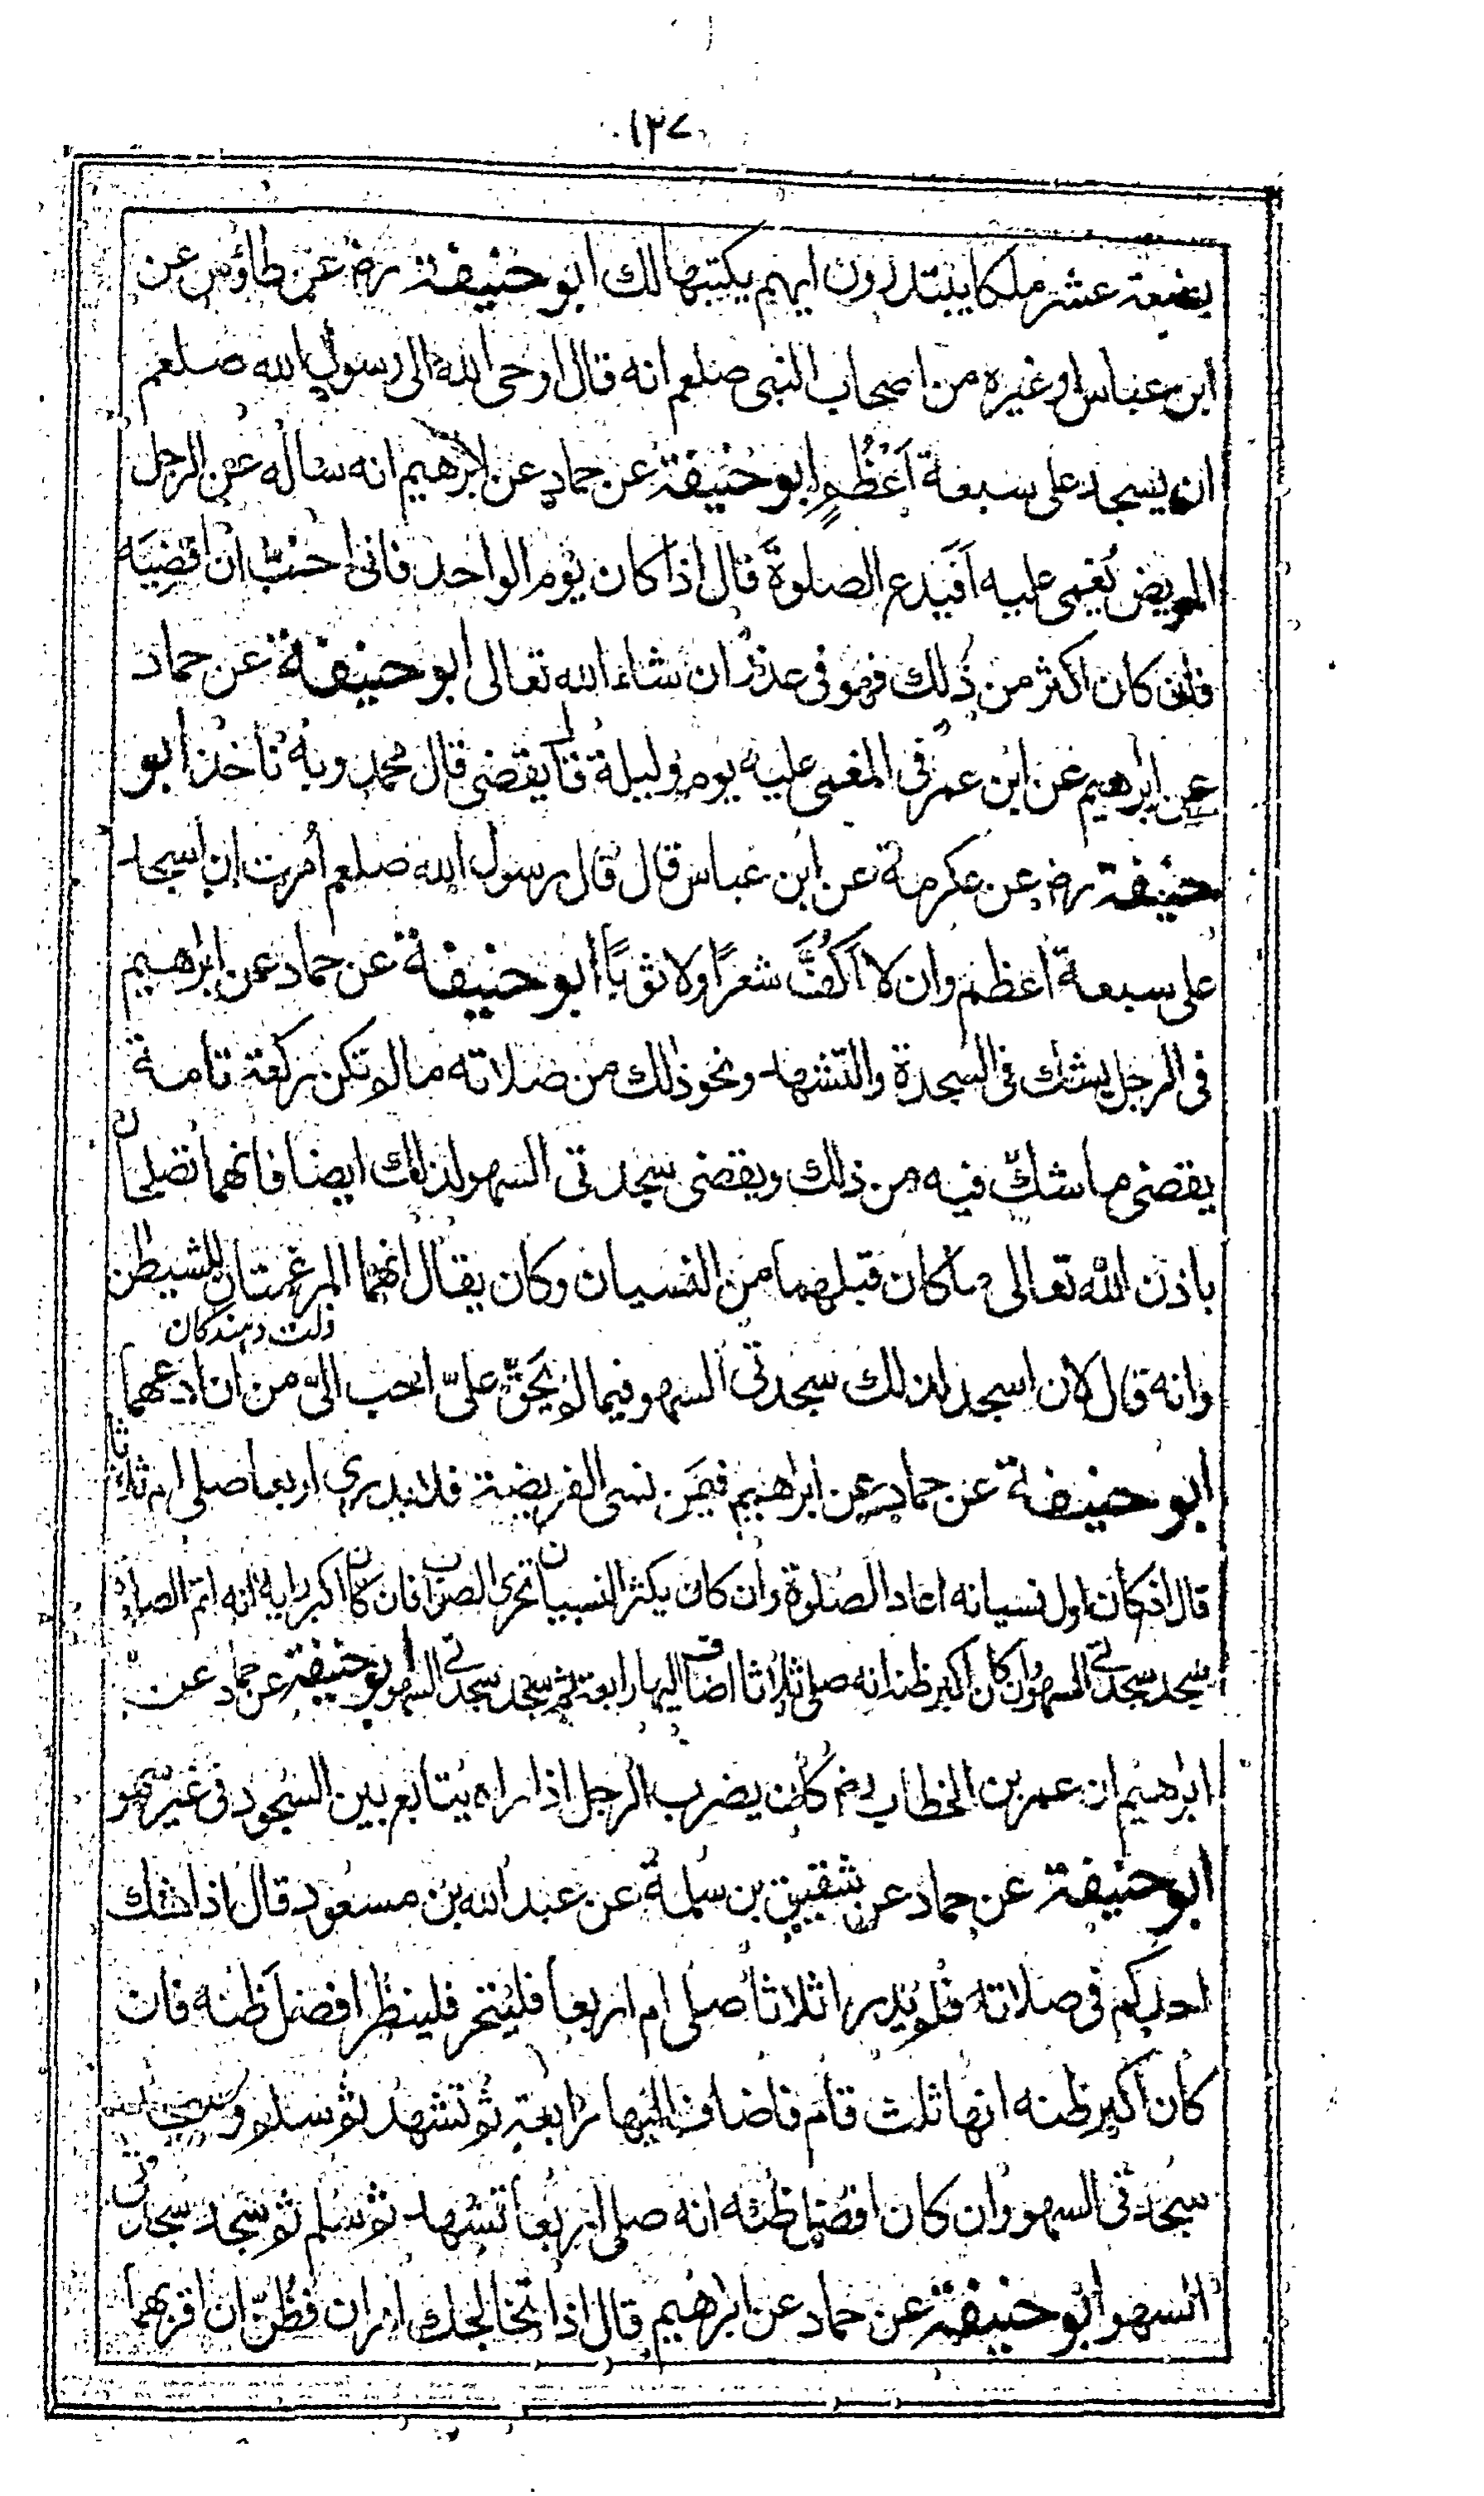 ١٣٧
بضعة عشر ملكا يبتدرون ايهم يكتبها لك ابو حنيفة رض عن طاؤس عن
ابن عباس او غيره من اصحاب النبى صلعم انه قال اوحى الله الى رسول الله صلعم
ان يسجد على سبعة اَعْظُمٍ ابو حنيفة عن حماد عن ابرهيم انه ساله عن الرجل
المريض يُغمى عليه اَفَيَدع الصلوةَ قال اذا كان يوم الواحد فانى احبّ ان اقضيَه
فان كان اكثر من ذلك فهو فى عذر ان شاء الله تعالى ابو حنيفة عن حماد
عن ابرهيم عن ابن عمر فى المغمى عليه يوم وليلة قال يقضى قال محمد وبه ناخذ ابو
حنيفة رض عن عكرمة عن ابن عباس قال قال رسول الله صلعم اُمرت ان اسجد
على سبعة اعظم وان لا اَكُفَّ شعرًا ولا ثوبًا ابو حنيفة عن حماد عن ابرهيم
فى الرجل يشك فى السجدة والتشهد ونحو ذلك من صلاته ما لم تكن ركعة تامة
يقضى ما شكّ فيه من ذلك ويقضى سجدتى السهو لذلك ايضا فانهما تصليان
باذن الله تعالى ما كان قبلهما من النسيان وكان يقال انهما المرغمتان للشيطن
ذلت دہندگان
وانه قال لان اسجد لذلك سجدتى السهو فيما لم يَحقّ علىّ احب الىّ من ان ادعهما
ابو حنيفة عن حماد عن ابراهيم فيمَن نسى الفريضة فلا يدرى اربعا صلى ام ثلاثا
قال اذ كان اول نسيانه اعاد الصلوة وان كان يكثر النسيان تحرى الصواب فان كان اكبر رايه انه اتم الصلوة
سجد سجدتى السهو وان كان اكبر ظنه انه صلى ثلاثا اضاف اليها رابعة ثم سجد سجدتى السهو ابو حنيفة عن حماد عن
ابرهيم ان عمر بن الخطاب رض كان يضرب الرجل اذا راه يتابع بين السجود فى غير سهو
ابو حنيفة عن حماد عن شقيق بن سلمة عن عبد الله بن مسعود قال اذا شك
احدكم فى صلاته فلم يدر اثلاثا صلى ام اربعا فليتحر فلينظر افضل ظنه فان
كان اكبر ظنه انها ثلث قام فاضاف اليها رابعة ثم تشهد ثم سلم و
سجدتى السهو وان كان افضل ظنه انه صلى اربعا تشهد ثم سلم ثم سجد سجدتى
السهو ابو حنيفة عن حماد عن ابرهيم قال اذا تخالجك امران فظُنّ ان اقربهما